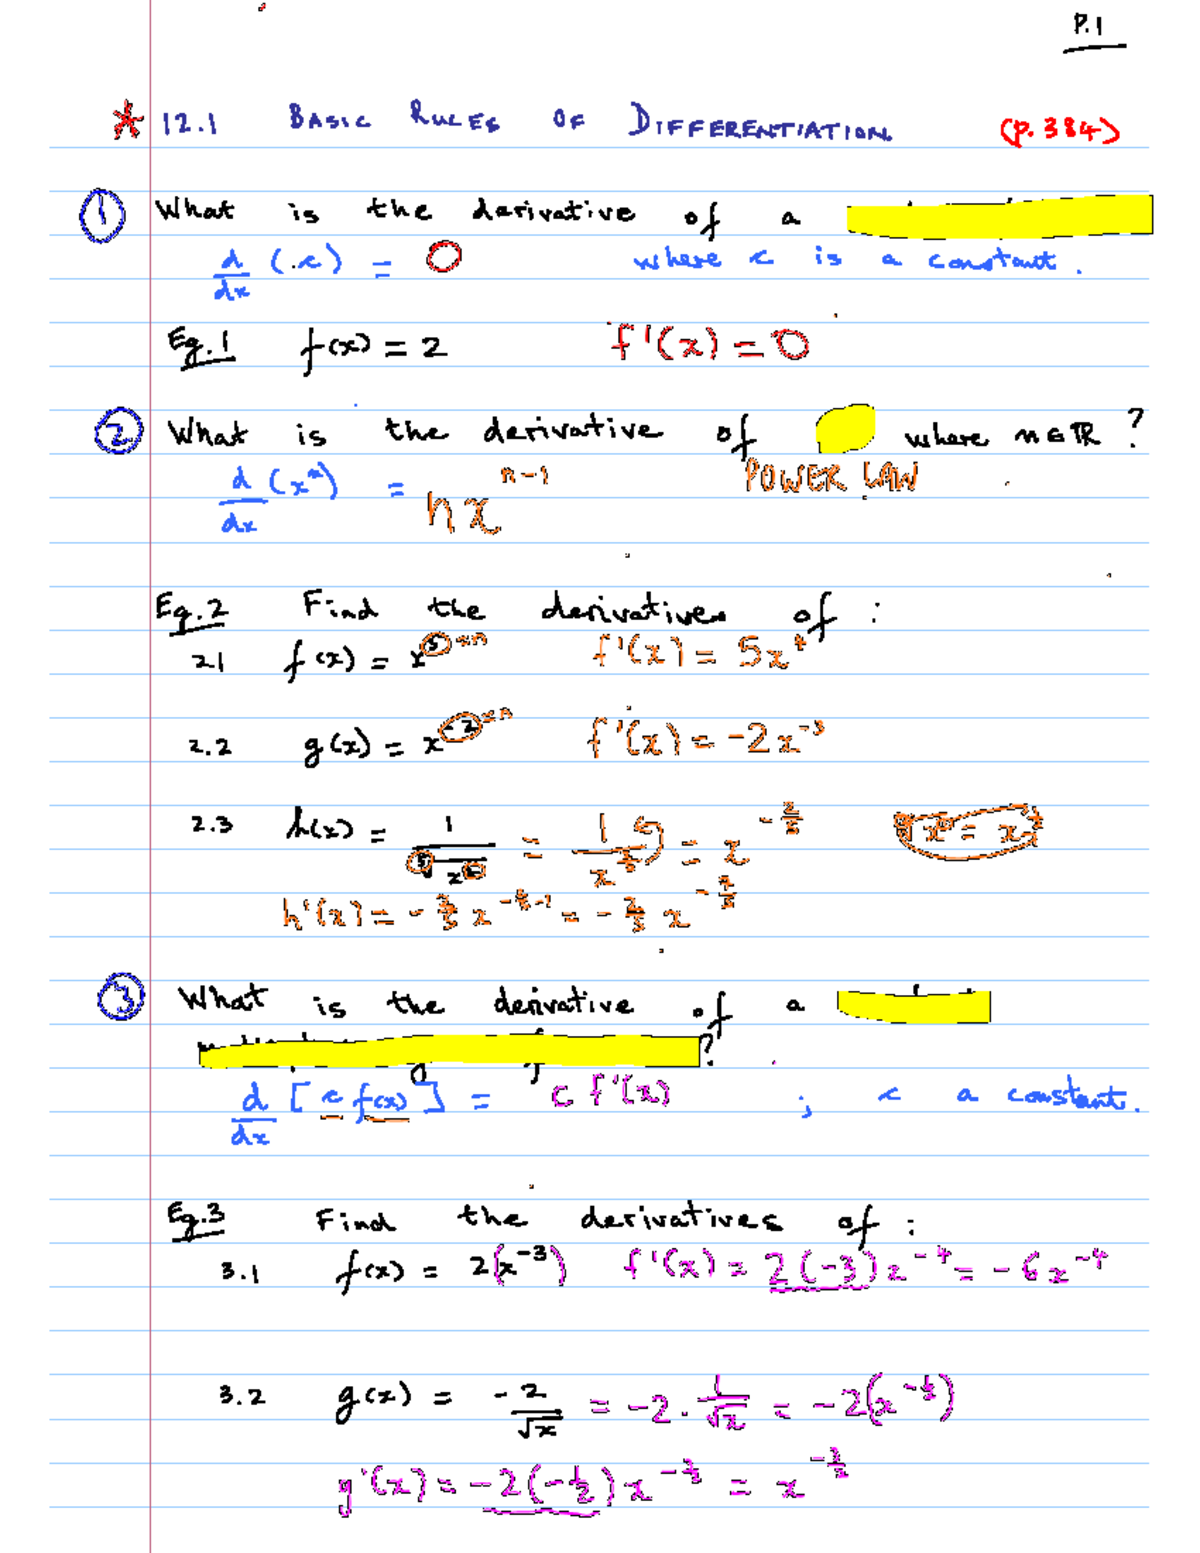 P.1
* 12.1 BASIC RULES OF DIFFERENTIATION (P.384)
① What is the derivative of a
d/dx (c) = 0 where c is a constant.
Eg.1 f(x) = 2 f'(x) = 0
② What is the derivative of where n∈ℝ ?
POWER LAW
d/dx (xⁿ) = n x^(n-1)
Eg.2 Find the derivatives of :
2.1 f(x) = x^5 f'(x) = 5x^4
2.2 g(x) = x^-2 f'(x) = -2x^-3
2.3 h(x) = 1
h'(x) =
③ What is the derivative of a
?
d/dx [c f(x)] = c f'(x) ; c a constant.
Eg.3 Find the derivatives of :
3.1 f(x) = 2(x^-3) f'(x) = 2(-3)x^-4 = -6x^-4
3.2 g(x) = -2/√x = -2 · 1/√x = -2(x^-½)
g'(x) = -2(-½)x^-3/2 = x^-3/2